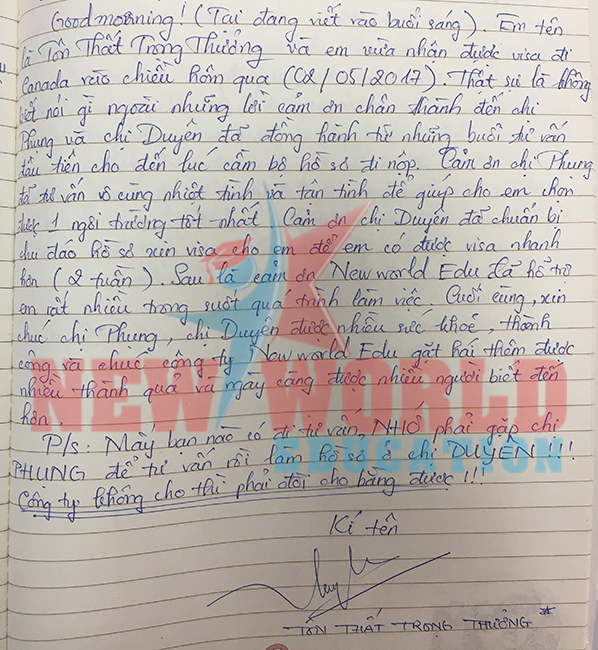 Good morning! (Tại đang viết vào buổi sáng). Em tên
là Tôn Thất Trọng Thưởng và em vừa nhận được visa đi
Canada vào chiều hôm qua (02/05/2017). Thật sự là không
biết nói gì ngoài những lời cảm ơn chân thành đến chị
Phụng và chị Duyên đã đồng hành từ những buổi tư vấn
đầu tiên cho đến lúc cầm bộ hồ sơ đi nộp. Cảm ơn chị Phụng
đã tư vấn vô cùng nhiệt tình và tận tình để giúp cho em chọn
được 1 ngôi trường tốt nhất. Cảm ơn chị Duyên đã chuẩn bị
chu đáo hồ sơ xin visa cho em để em có được visa nhanh
hơn (2 tuần). Sau là cảm ơn New world Edu đã hỗ trợ
em rất nhiều trong suốt quá trình làm việc. Cuối cùng, xin
chúc chị Phụng, chị Duyên được nhiều sức khoẻ, thành
công và chúc công ty New world Edu gặt hái thêm được
nhiều thành quả và ngày càng được nhiều người biết đến
hơn.
P/s: Mấy bạn nào có đi tư vấn, NHỚ phải gặp chị
PHỤNG để tư vấn rồi làm hồ sơ ở chị DUYÊN!!!
Công ty không cho thì phải đòi cho bằng được!!!
Kí tên
TÔN THẤT TRỌNG THƯỞNG
NEW WORLD
EDUCATION